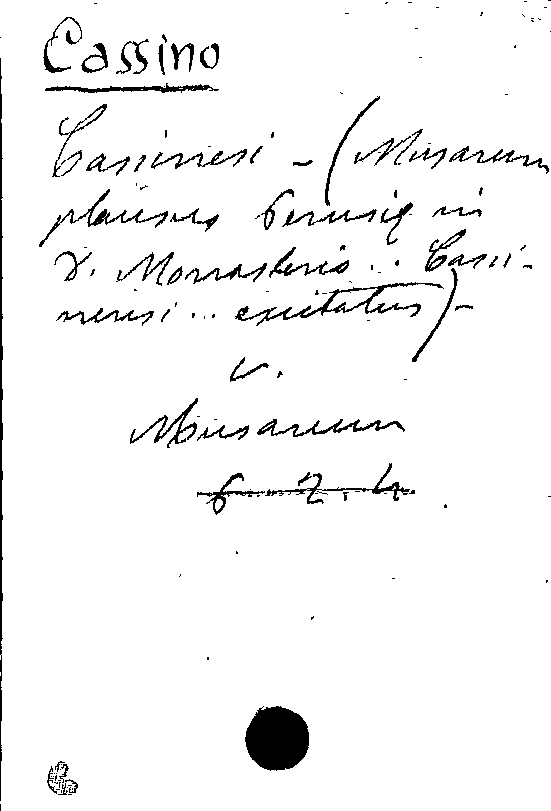 Cassino
Cassinesi - (Musarum
plausus Perusiae in
D. Monasterio .. Cassi-
nensi .. excitatus) -
v.
Musarum
6 - 2. 4.